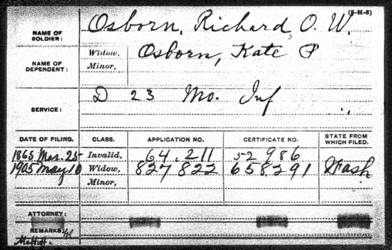 (3-H-8)
NAME OF SOLDIER: Osborn, Richard, O. W.
NAME OF DEPENDENT: Widow, Osborn, Kate P
Minor,
SERVICE: D 23 Mo. Inf
DATE OF FILING. CLASS. APPLICATION NO. CERTIFICATE NO. STATE FROM WHICH FILED.
1865 Mar. 25 Invalid, 64.211 52 986
1905 May 10 Widow, 827822 658291 Wash
Minor,
ATTORNEY:
REMARKS: